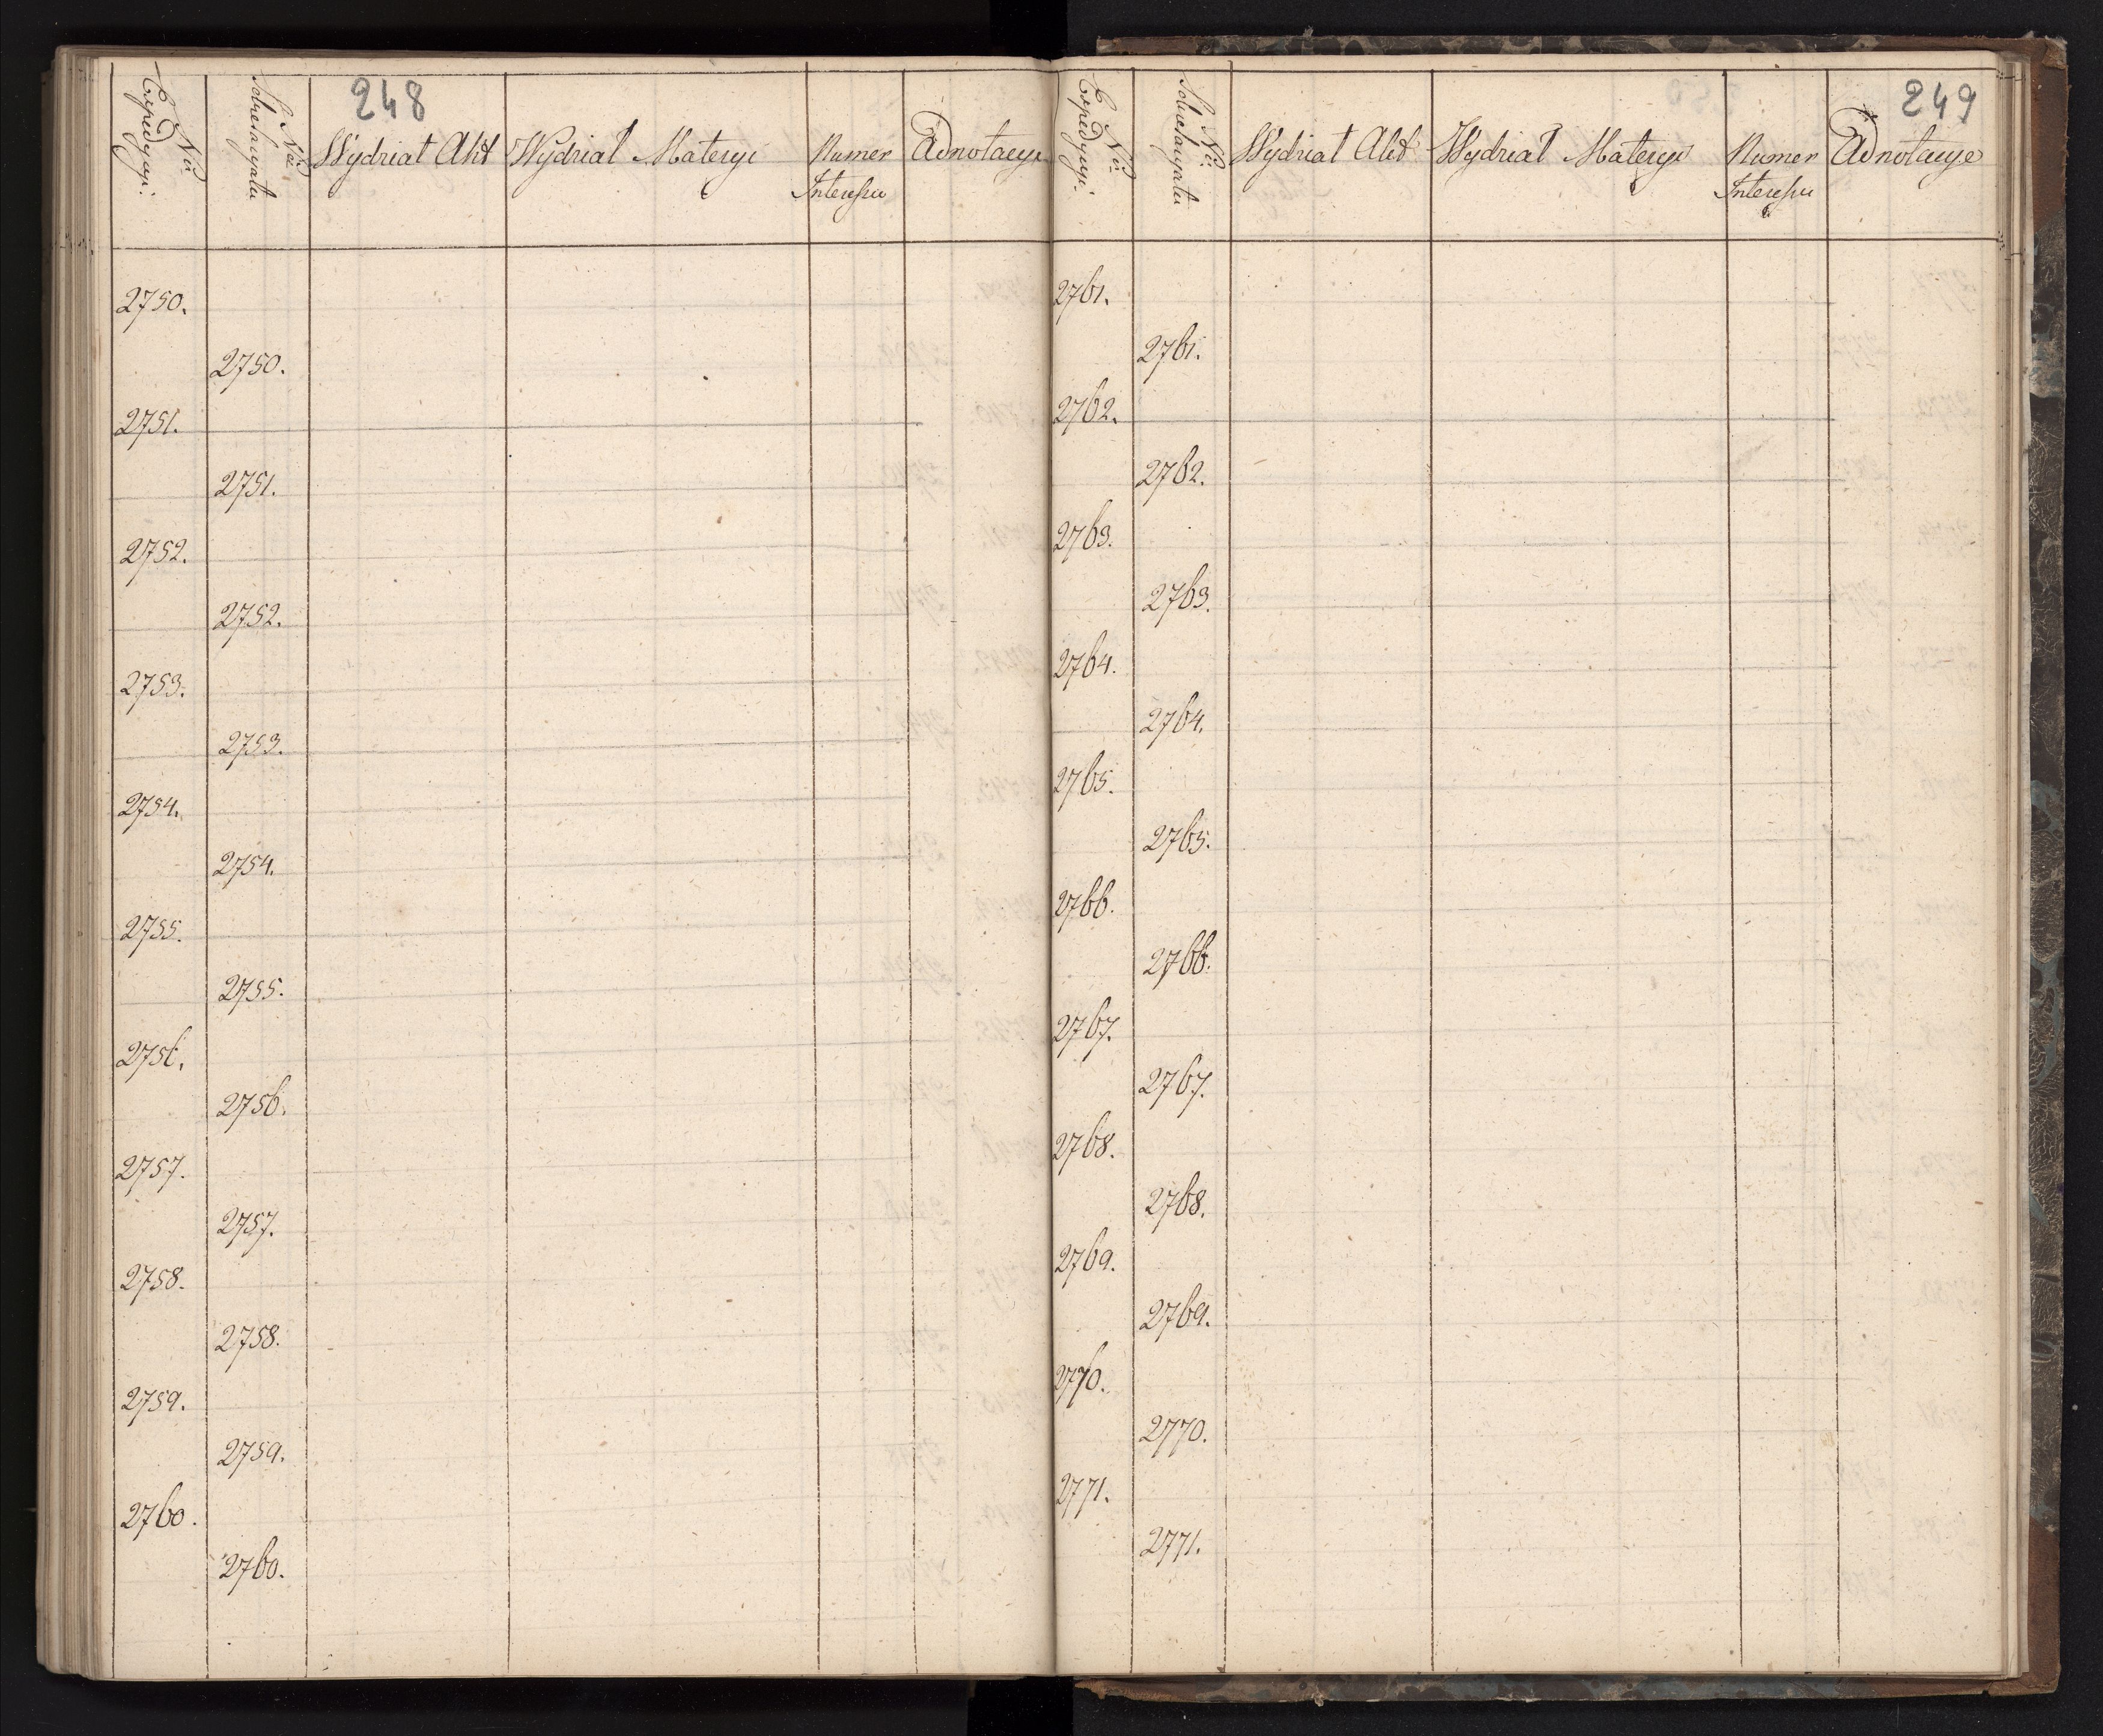 248
Nro Expedycyi:
Nro Sekretaryatu
Wydział Akt
Wydział Materyi
Numer Interessu
Adnotacye
2750.
2750.
2751.
2751.
2752.
2752.
2753.
2753.
2754.
2754.
2755.
2755.
2756.
2756.
2757.
2757.
2758.
2758.
2759.
2759.
2760.
2760.
249
Nro Expedycyi:
Nro Sekretaryatu
Wydział Akt
Wydział Materyi
Numer Interessu
Adnotacye
2761.
2761.
2762.
2762.
2763.
2763.
2764.
2764.
2765.
2765.
2766.
2766.
2767.
2767.
2768.
2768.
2769.
2769.
2770.
2770.
2771.
2771.